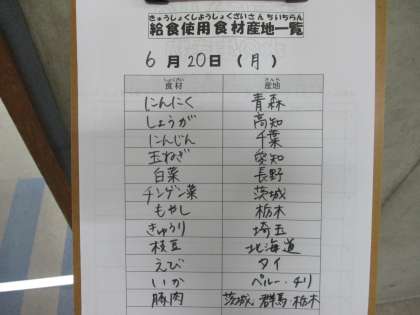 きゅうしょくしようしょくざいさんちいちらん
給食使用食材産地一覧
6月20日(月)
しょくざい さんち
食材 産地
にんにく 青森
しょうが 高知
にんじん 千葉
玉ねぎ 愛知
白菜 長野
チンゲン菜 茨城
もやし 栃木
きゅうり 埼玉
枝豆 北海道
えび タイ
いか ペルー・チリ
豚肉 茨城 群馬 栃木